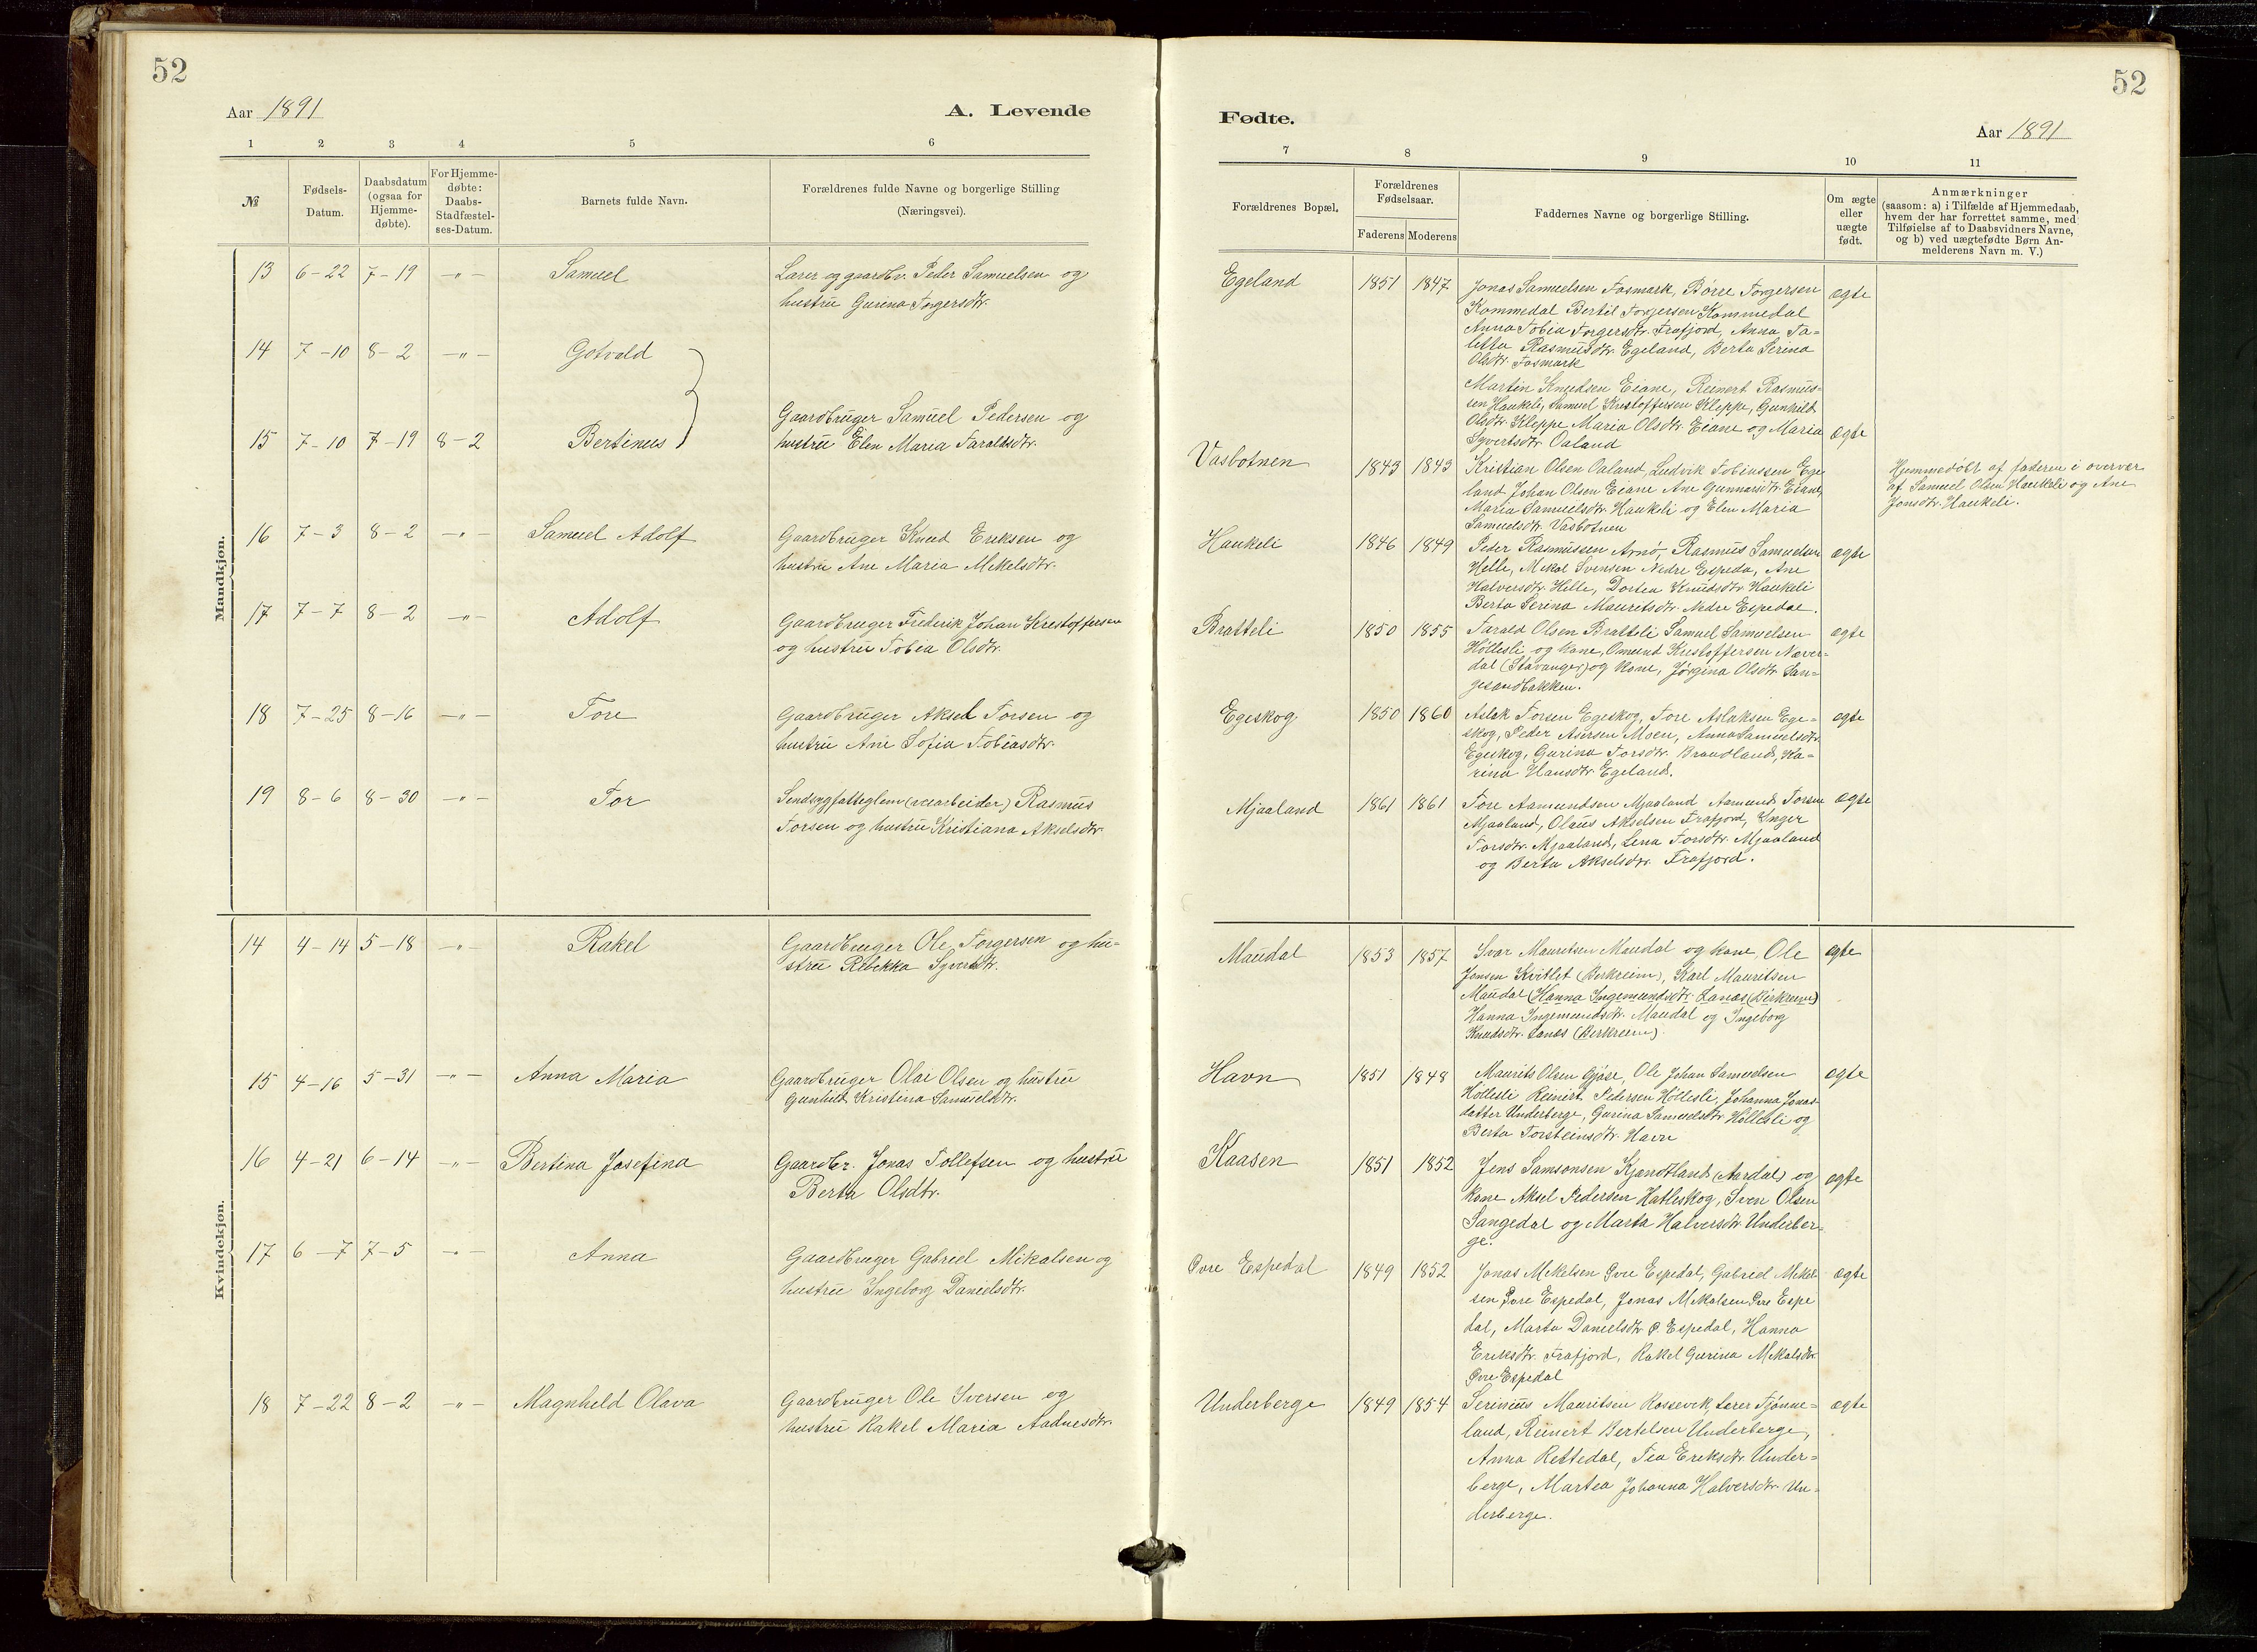 52
Aar 1891
A. Levende
1 2 3 4 5 6
№
Fødsels-
Datum.
Daabsdatum
(ogsaa for
Hjemme-
døbte).
For Hjemme-
døbte:
Daabs-
Stadfæstel-
ses-Datum.
Barnets fulde Navn.
Forældrenes fulde Navne og borgerlige Stilling
(Næringsvei).
Mandkjøn.
13 6-22 7-19 -"- Samuel
Lærer og gaardbr. Peder Samuelsen og
hustru Gurina Torgersdtr.
14 7-10 8-2 -"- Gotvald
15 7-10 7-19 8-2 Bertinus
Gaardbruger Samuel Pedersen og
hustru Elen Maria Taraldsdtr.
16 7-3 8-2 -"- Samuel Adolf
Gaardbruger Knud Eriksen og
hustru Ane Maria Mikelsdtr.
17 7-7 8-2 -"- Adolf
Gaardbruger Frederik Johan Kristoffersen
og hustru Tobia Olsdtr.
18 7-25 8-16 -"- Tore
Gaardbruger Aksel Torsen og
hustru Ane Sofia Tobiasdtr.
19 8-6 8-30 -"- Tor
Rasmus
Torsen og hustru Kristiana Akselsdtr.
Kvindekjøn.
14 4-14 5-18 -"- Rakel
Gaardbruger Ole Torgersen og hu-
stru Rebekka Syvertsdtr.
15 4-16 5-31 -"- Anna Maria
Gaardbruger Olai Olsen og hustru
Gunhild Kristina Samuelsdtr.
16 4-21 6-14 -"- Bertina Josefina
Gaardbr. Jonas Tollefsen og hustru
Berta Olsdtr.
17 6-7 7-5 -"- Anna
Gaardbruger Gabriel Mikalsen og
hustru Ingeborg Danielsdtr.
18 7-22 8-2 -"- Magnhild Olava
Gaardbruger Ole Iversen og
hustru Rakel Maria Aadnesdtr.
52
Fødte.
Aar 1891
7 8 9 10 11
Forældrenes Bopæl.
Forældrenes
Fødselsaar.
Faderens Moderens
Faddernes Navne og borgerlige Stilling.
Om ægte
eller
uægte
født.
Anmærkninger
(saasom: a) i Tilfælde af Hjemmedaab,
hvem der har forrettet samme, med
Tilføielse af to Daabsvidners Navne,
og b) ved uægtefødte Børn An-
melderens Navn m. V.)
Egeland 1851 1847 ægte
Jonas Samuelsen Fosmark, Børre Torgersen
Kommedal Bertil Torgersen Kommedal
Anna Tobia Torgersdtr. Frafjord, Anna Ta-
letta Rasmusdtr. Egeland, Berta Serina
Olsdtr. Fosmark
Martin Knudsen Eiane, Reinert Rasmus-
sen Haukeli, Samuel Kristoffersen Kleppe, Gunhild
Olsdtr. Kleppe Maria Olsdtr. Eiane og Maria ægte
Syvertsdtr. Oaland
Vasbotnen 1843 1843
Kristian Olsen Oaland, Ludvik Tobiassen Ege-
land Johan Olsen Eiane Ane Gunnarsdtr. Eiane,
Maria Samuelsdtr. Haukeli og Elen Maria
Samuelsdtr. Vasbotnen
Hjemmedøbt af faderen i overvær
af Samuel Olsen Haukeli og Ane
Jonsdtr. Haukeli.
Haukeli 1846 1849 ægte
Peder Rasmussen Arnø, Rasmus Samuelsen
Helle, Mikal Svensen Nedre Espeda, Ane
Halversdtr. Helle, Dortea Knudsdtr. Haukeli
Berta Serina Mauritsdtr. Nedre Espedal.
Bratteli 1850 1855 ægte
Tarald Olsen Bratteli Samuel Samuelsen
Høllesli og kone, Omund Kristoffersen Næver-
dal (Stavanger) og kone, Jørgina Olsdtr. San-
gesandbakken.
Egeskog 1850 1860 ægte
Aslak Torsen Egeskog, Tore Aslaksen Ege-
skog, Peder Asersen Moen, Anna Samuelsdtr.
Egeskog, Gurina Torsdtr. Brandland, Ka-
rina Hansdtr. Egeland.
Mjaaland 1861 1861 ægte
Tore Aamundsen Mjaaland Aamund Torsen
Mjaaland, Olaus Akselsen Frafjord, Inger
Torsdtr. Mjaaland, Lena Torsdtr. Mjaaland
og Berta Akselsdtr. Frafjord.
Maudal 1853 1857 ægte
Ivar Mauritsen Maudal og kone, Ole
Jonsen Kvitlet (Berkreim), Karl Mauritsen
Maudal (Hanna Ingemundsdtr. Lanæs (Birkreim)
Hanna Ingemundsdtr. Maudal og Ingeborg
Knudsdtr. Lanæs (Berkreim).
Havn 1851 1848 ægte
Maurits Olsen Gjøse, Ole Johan Samuelsen
Höllesli Reinert Pedersen Höllesli, Johanna Jonas-
datter Underberge, Gurina Samuelsdtr. Höllesli og
Berta Torsteinsdtr. Havn
Kaasen 1851 1852 ægte
Jens Samsonsen Kjøndtland (Aardal) og
kone Aksel Pedersen Hatleskog, Sven Olsen
Sangedal og Marta Halversdtr. Underber-
ge.
Øvre Espedal 1849 1852 ægte
Jonas Mikelsen Øvre Espedal, Gabriel Mikel-
sen Øvre Espedal, Jonas Mikalsen Øvre Espe
dal, Marta Danielsdtr. Ø. Espedal, Hanna
Eriksdtr. Frafjord, Rakel Gurina Mikalsdtr.
Øvre Espedal
Underberge 1849 1854 ægte
Serinius Mauritsen Rossevik, Lærer Tjønne-
land, Reinert Bertelsen Underberge,
Anna Rettedal, Tea Eriksdtr. Under-
berge, Martea Johanna Halversdtr. Un-
derberge.